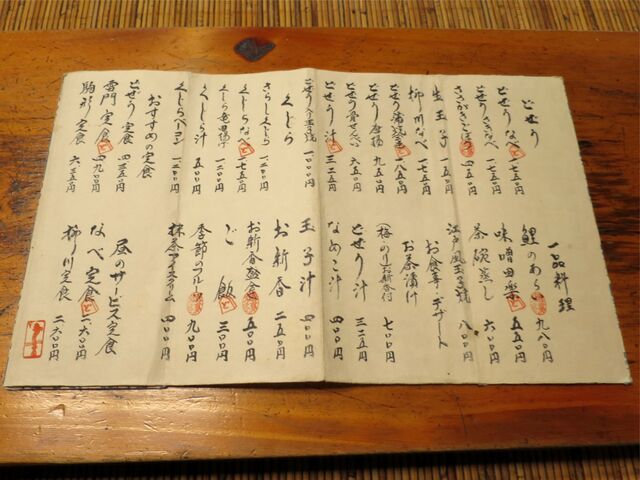 どぜう
どぜうなべ 一七五〇円
どぜうさきなべ 一七五〇円
ささがきごぼう 四五〇円
生玉子 一五〇円
柳川なべ 一七五〇円
どぜう蒲焼 一八五〇円
どぜう唐揚 九五〇円
どぜう骨せんべい 六五〇円
どぜう汁 三二五円
一〇〇〇円
くじら
さらしくじら 一二〇〇円
くじらなべ 一七五〇円
くじら竜田揚げ 一三〇〇円
くじら汁 五〇〇円
くじらベーコン 一三〇〇円
おすすめの定食
どぜう定食 四二五〇円
雷門定食 四九〇〇円
駒形定食 六三五〇円
一品料理
鯉のあらい 九八〇円
味噌田楽 五五〇円
茶碗蒸し 六〇〇円
江戸風玉子焼 八〇〇円
お食事・デザート
お茶漬け
(梅・のり お新香付) 七〇〇円
どぜう汁 三二五円
なめこ汁 四〇〇円
玉子汁 四〇〇円
お新香 二五〇円
お新香盛合 五〇〇円
ご飯 三〇〇円
季節のフルーツ 九〇〇円
抹茶アイスクリーム 四〇〇円
昼のサービス定食
なべ定食 二六〇〇円
柳川定食 二六〇〇円